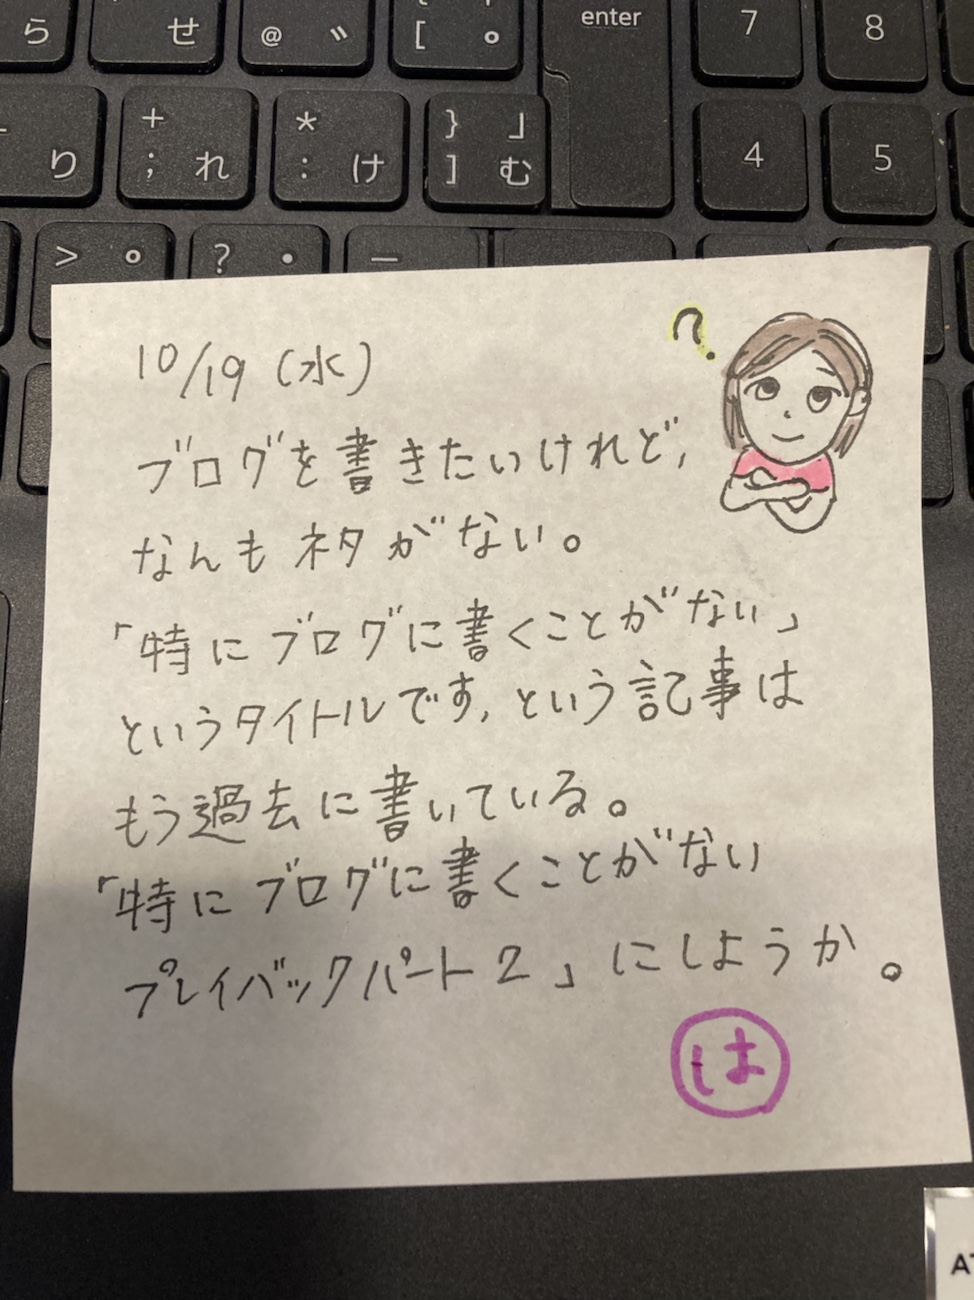 ら せ @ ゛ [ ゜ enter 7 8
り + ; れ * : け } 」 ] む 4 5
> 。 ? ・ _
?
10/19 (水)
ブログを書きたいけれど,
なんもネタがない。
「特にブログに書くことがない」
というタイトルです, という記事は
もう過去に書いている。
「特にブログに書くことがない
プレイバックパート2」にしようか。
は